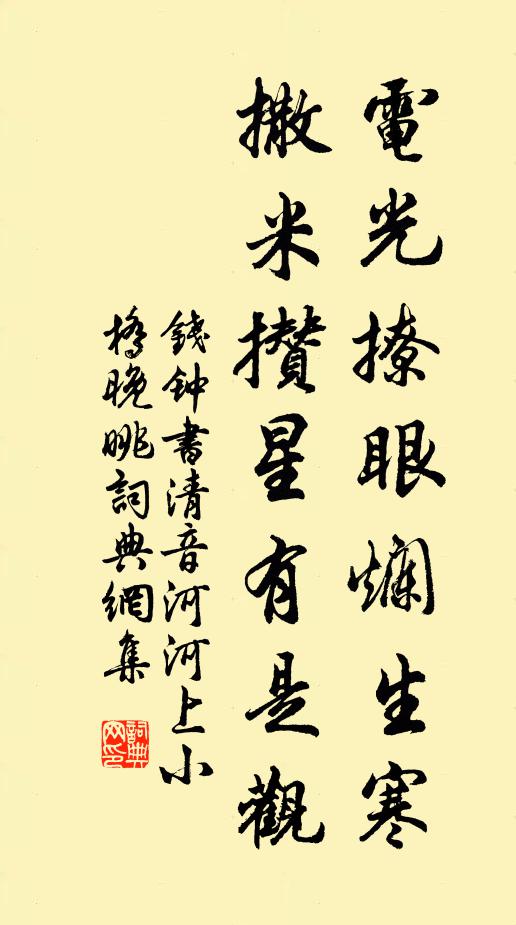 電光撩眼爛生寒
撒米攢星有是觀
錢鈡書清音河河上小
橋晚眺詞典網集
詞典
网印